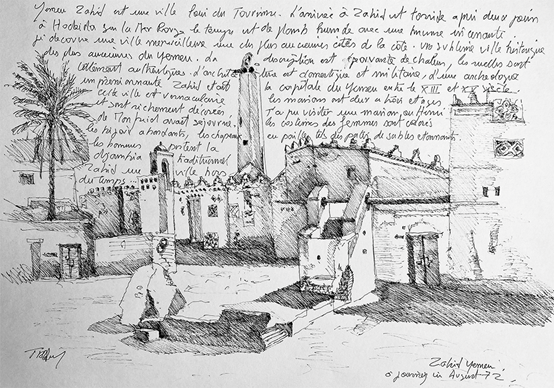 Yemen Zabid est une ville loin du Tourisme. L'arrivée à Zabid est torride après deux jours
à Hodeida sur la Mer Rouge le temps est de plomb humide avec une brume
je découvre une ville merveilleuse une des plus anciennes cités de la côte. une sublime ville historique
des plus anciennes du Yemen. La description est épouvante de chaleur, les ruelles sont
d'architecture est domestique et militaire d'une archéologie
Zabid était la capitale du Yemen entre le XIII et XV siècle
cette ville est vernaculaire les maisons sont deux à trois étages.
et sont richement décorées J'ai pu visiter une maison
avait séjourné. les costumes des femmes sont
les bijoux abondants, les chapeaux en paille tels des
les hommes portent la
djambia traditionnel
Zabid une ville hors
du temps...
Zabid Yemen
in August 72